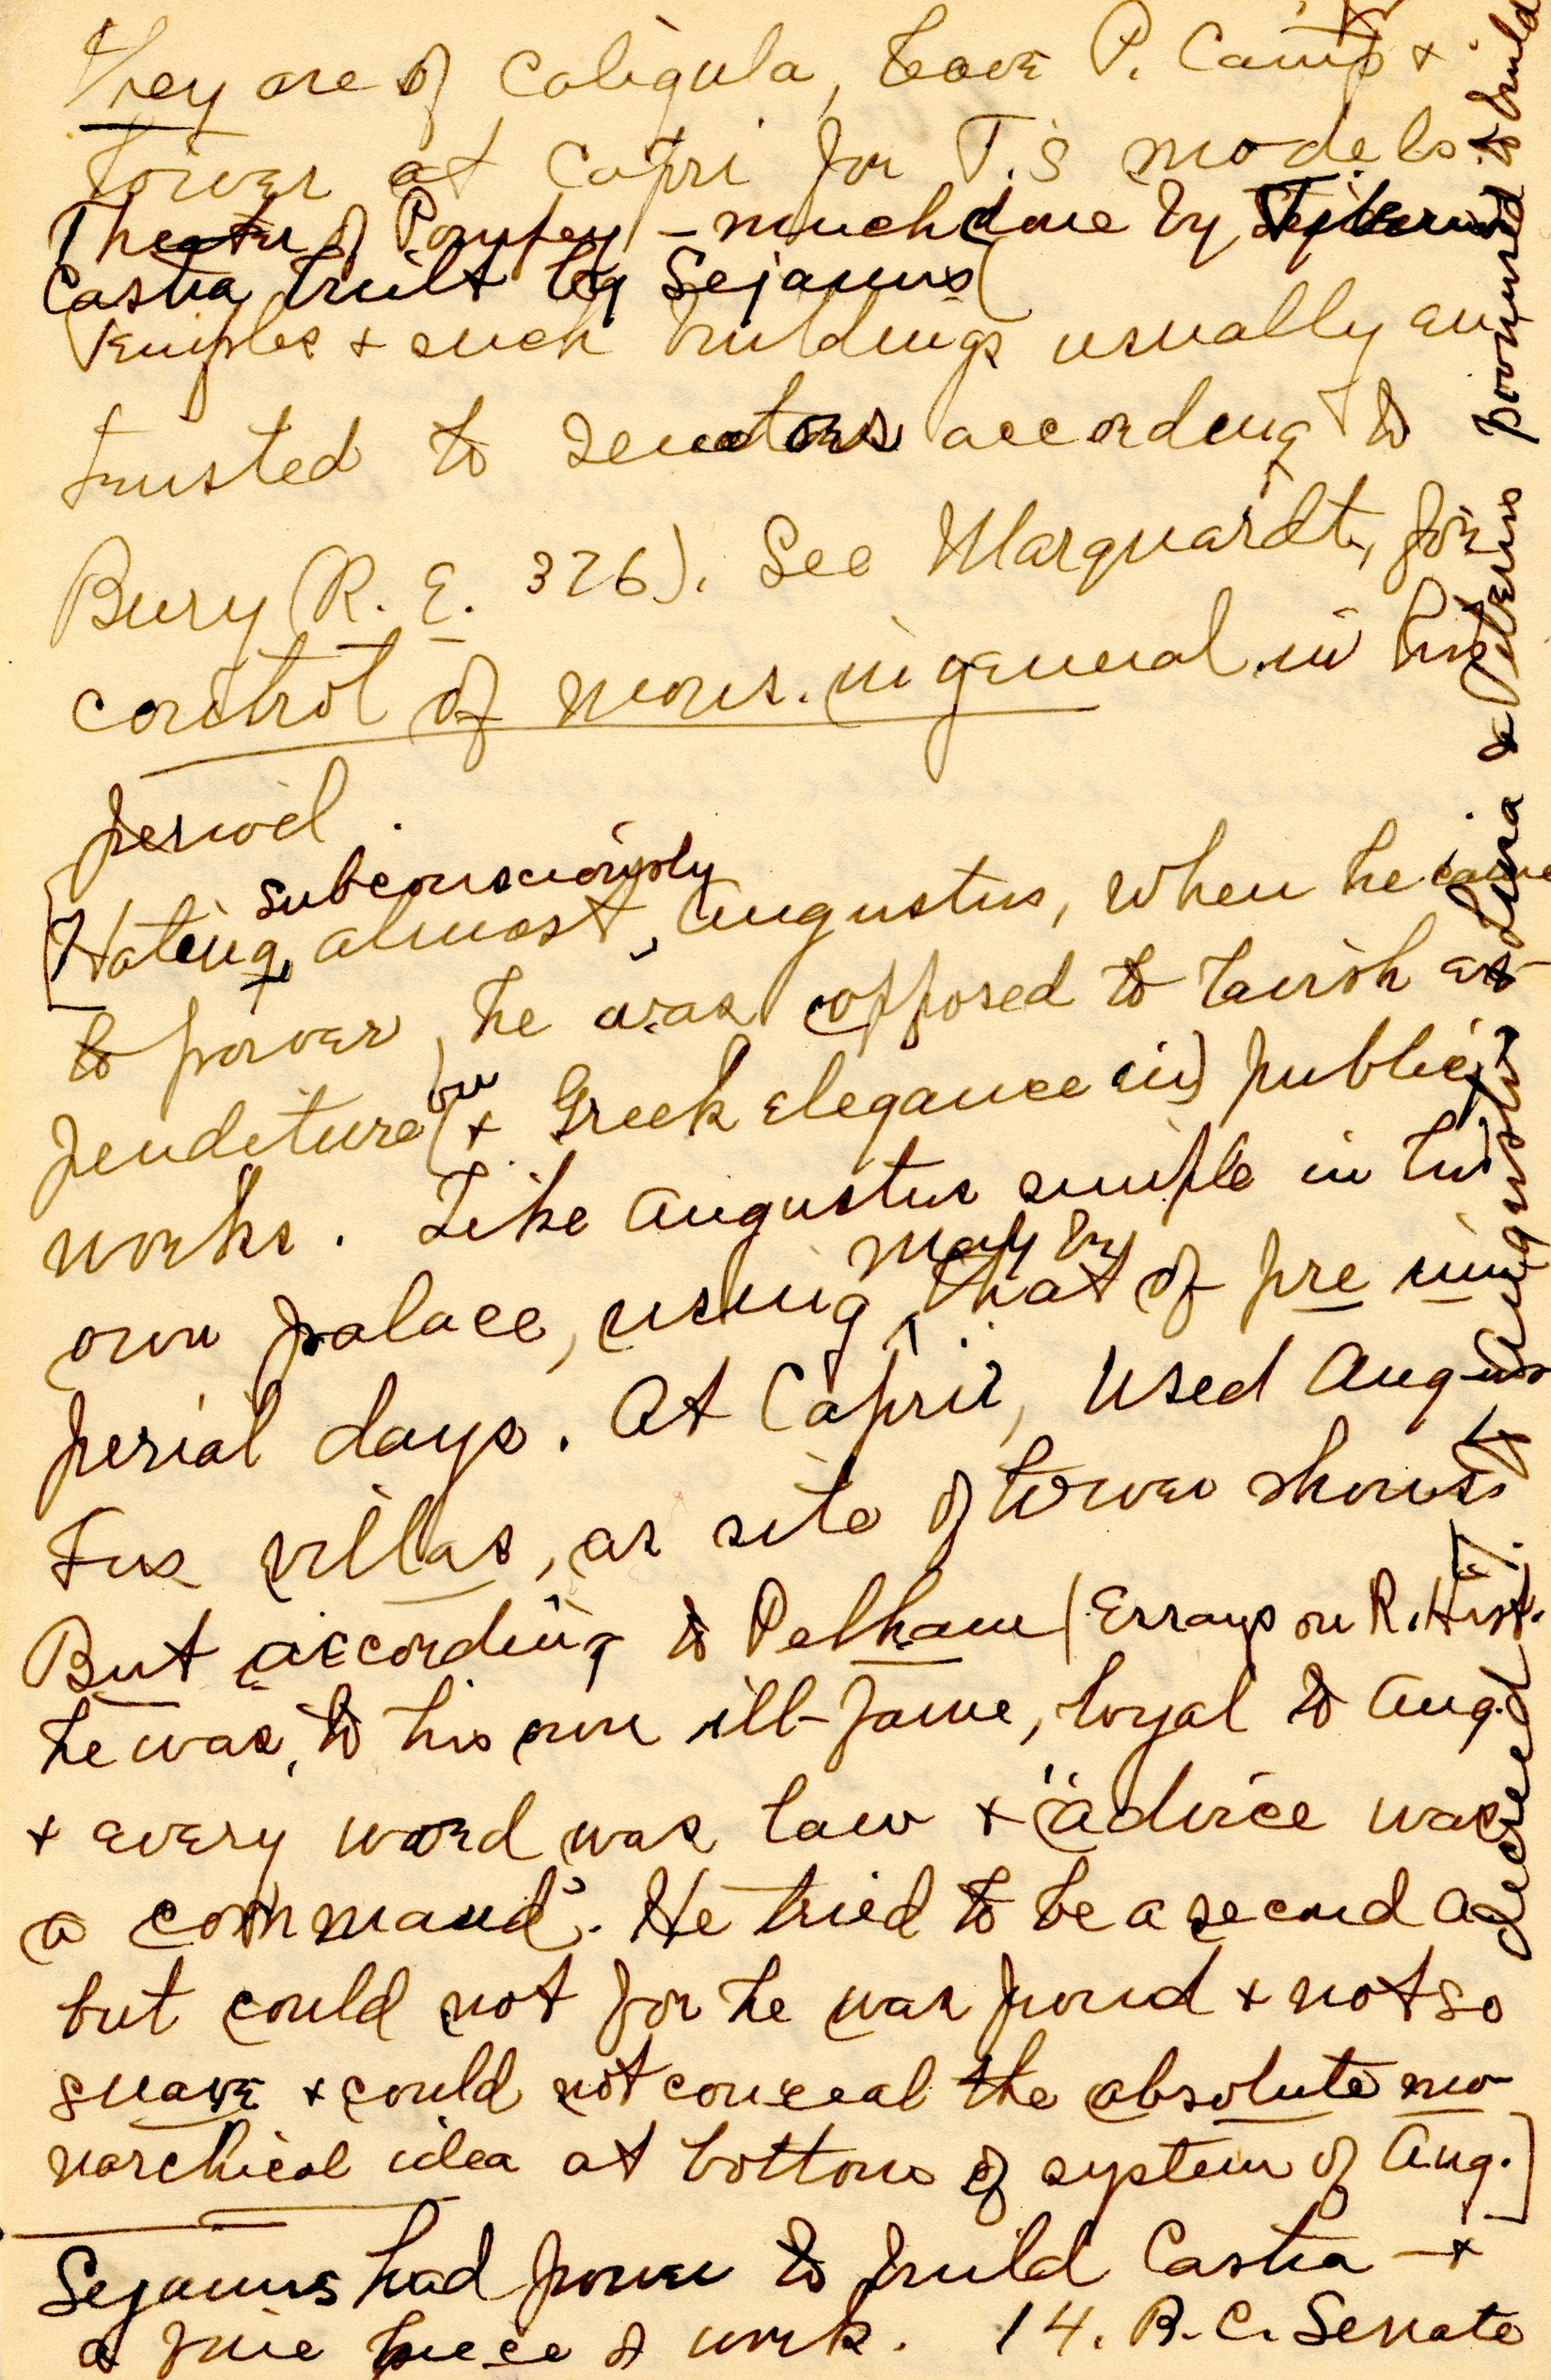 They are of Caligula, leave P. Camp +
tower at Capri for T.'s models.
Theater of Pompey – much done by
Castra built by Sejanus
Temples + such buildings usually en
trusted to senators according to
Bury (R. E. 376). See Marquardt, for
control of mons. in general in his
period.
[Hating, almost subconsciously, Augustus, when he came
to power, he was opposed to lavish ex-
penditure (on + Greek elegance in) public
works. Like Augustus simple in his
own palace, using that of pre im
perial days. At Capri, used Augus
tus villas, as site of tower shows.
But according to Pelham (Essays on R. Hist.
he was, to his own ill-fame, loyal to Aug.
+ every word was law + "advice was
a command". He tried to be a second A
but could not for he was proud + not so
suave + could not conceal the absolute mo
narchical idea at bottom of system of Aug.]
Sejanus had power to build Castra – +
a fine piece of work. 14. B.C. Senate
decreed to Augustus Livia & Tiberius power to build